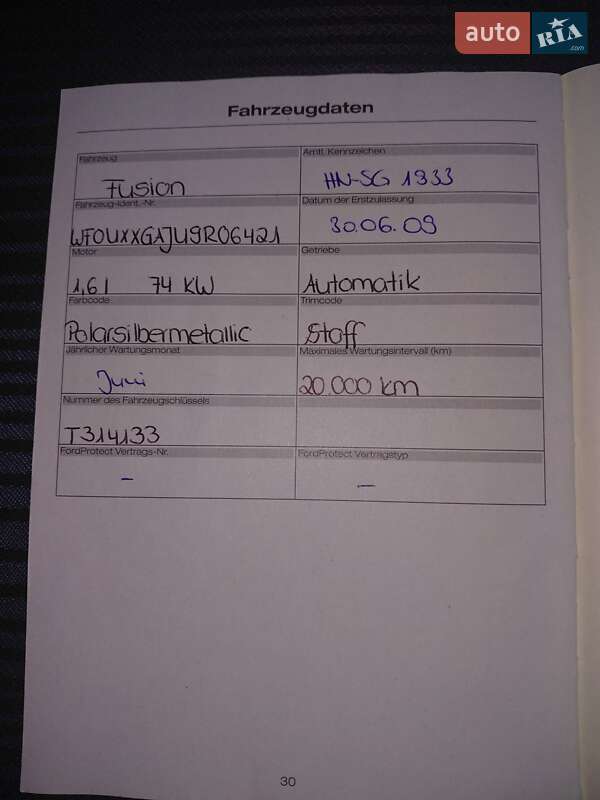 auto RIA.com
Fahrzeugdaten
Fahrzeug
Amtl. Kennzeichen
Fusion
HN-SG 1933
Fahrzeug-Ident.-Nr.
Datum der Erstzulassung
WF0UXXGAJU9R06421
30.06.09
Motor
Getriebe
1,6 l 74 KW
Automatik
Farbcode
Trimcode
Polarsilbermetallic
Stoff
Jährlicher Wartungsmonat
Maximales Wartungsintervall (km)
Juni
20.000 km
Nummer des Fahrzeugschlüssels
T314133
FordProtect Vertrags-Nr.
FordProtect Vertragstyp
–
–
30